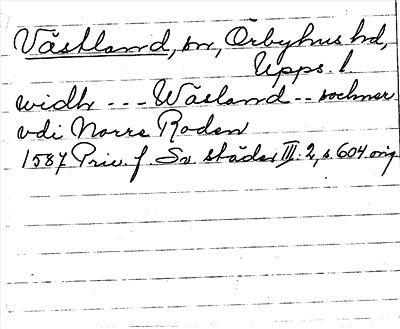 Västland, sn, Örbyhus hd,
Upps. l.
widh --- Wäsland -- sochner
vdi Norre Roden
1587 Priv. f. Sv städer III: 2, s. 604 orig